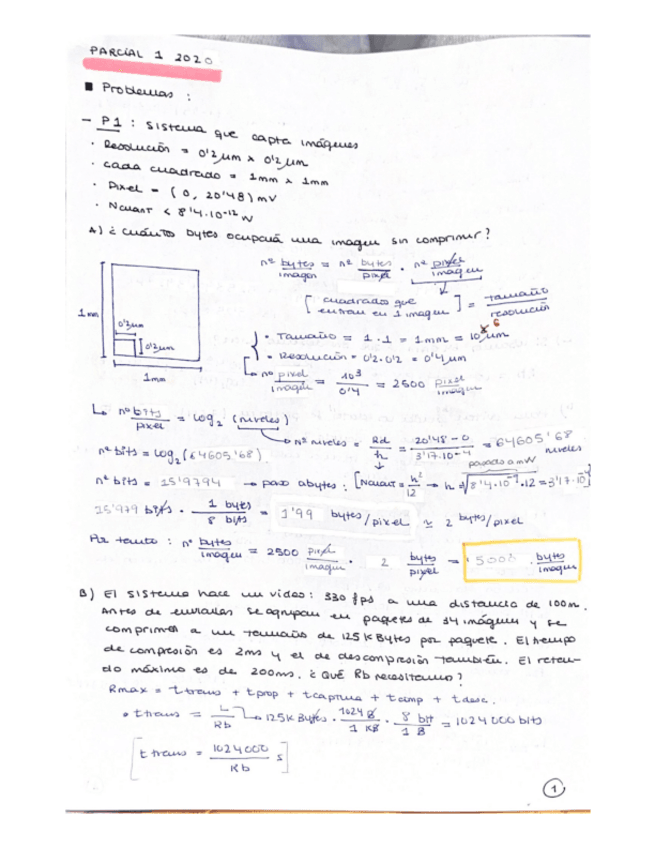 PARCIAL 1 2020
■ Problemas :
- P1 : sistema que capta imágenes
· Resolución = 0'2 μm x 0'2 μm
· cada cuadrado = 1mm x 1mm
· Pixel = (0, 20'48) mV
· Ncuant < 8'4·10⁻¹² W
A) ¿ cuántos bytes ocupará una imagen sin comprimir?
nº bytes/imagen = nº bytes/pixel · nº pixel/imagen
[cuadrados que entran en 1 imagen] = tamaño/resolución
1 mm
0'2 μm
0'2 μm
1mm
· Tamaño = 1·1 = 1mm = 10⁶ μm
· Resolución = 0'2·0'2 = 0'4 μm
↳ nº pixel/imagen = 10³/0'4 = 2500 pixel/imagen
↳ nº bits/pixel = log₂ (niveles)
↳ nº niveles = Rd/h = 20'48 - 0/3'17·10⁻⁴ = 64605'68 niveles
pasado a mW
nº bits = log₂(64605'68)
nº bits = 15'9794 → paso a bytes : [Ncuant = h²/12 → h = √8'4·10⁻⁹·12 = 3'17·10⁻⁴]
15'979 bits · 1 byte/8 bits = 1'99 bytes/pixel ≃ 2 bytes/pixel
Por tanto : nº bytes/imagen = 2500 pixel/imagen · 2 bytes/pixel = 5000 bytes/imagen
B) El sistema hace un video : 330 fps a una distancia de 100m.
Antes de enviarlas se agrupan en paquetes de 34 imágenes y se
comprimen a un tamaño de 125 kBytes por paquete. El tiempo
de compresión es 2ms y el de descompresión también. El retar-
do máximo es de 200ms. ¿ Qué Rb necesitamo?
Rmax = t trans + t prop + t captura + t comp + t desc.
· t trans = L/Rb ↳ 125 K Bytes · 1024 B/1 KB · 8 bit/1 B = 1024000 bits
[t trans = 1024000/Rb s]
1